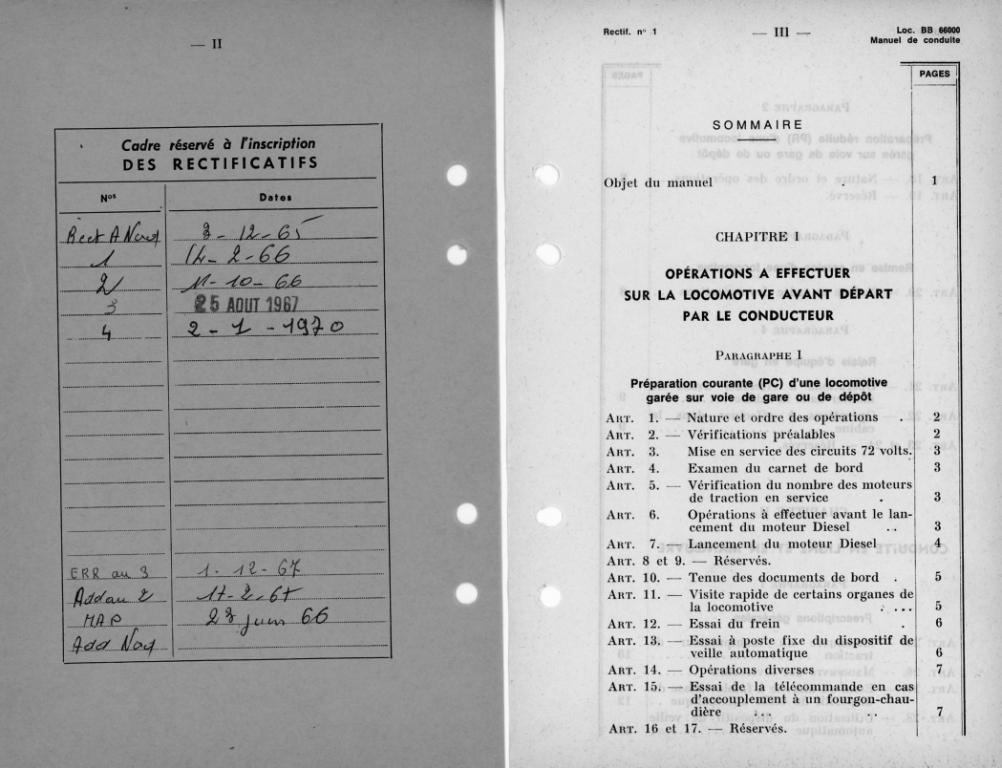 — II
Cadre réservé à l'inscription
DES RECTIFICATIFS
Nos Dates
Rect A Nord 3 - 12 - 65
1 14 - 2 - 66
2 11 - 10 - 66
3 25 AOUT 1967
4 2 - 1 - 1970
ERR au 3 1 - 12 - 67
Add au 2 17 - 2 - 67
MAP 23 juin 66
Add Nord
Rectif. n° 1 — III — Loc. BB 66000
Manuel de conduite
PAGES
SOMMAIRE
Objet du manuel . 1
CHAPITRE I
OPÉRATIONS A EFFECTUER
SUR LA LOCOMOTIVE AVANT DÉPART
PAR LE CONDUCTEUR
PARAGRAPHE I
Préparation courante (PC) d'une locomotive
garée sur voie de gare ou de dépôt
ART. 1. — Nature et ordre des opérations . 2
ART. 2. — Vérifications préalables 2
ART. 3. Mise en service des circuits 72 volts. 3
ART. 4. Examen du carnet de bord 3
ART. 5. — Vérification du nombre des moteurs
de traction en service . 3
ART. 6. Opérations à effectuer avant le lan-
cement du moteur Diesel . . 3
ART. 7. — Lancement du moteur Diesel 4
ART. 8 et 9. — Réservés.
ART. 10. — Tenue des documents de bord . 5
ART. 11. — Visite rapide de certains organes de
la locomotive . . . . 5
ART. 12. — Essai du frein . 6
ART. 13. — Essai à poste fixe du dispositif de
veille automatique 6
ART. 14. — Opérations diverses 7
ART. 15. — Essai de la télécommande en cas
d'accouplement à un fourgon-chau-
dière . . . . . 7
ART. 16 et 17. — Réservés.